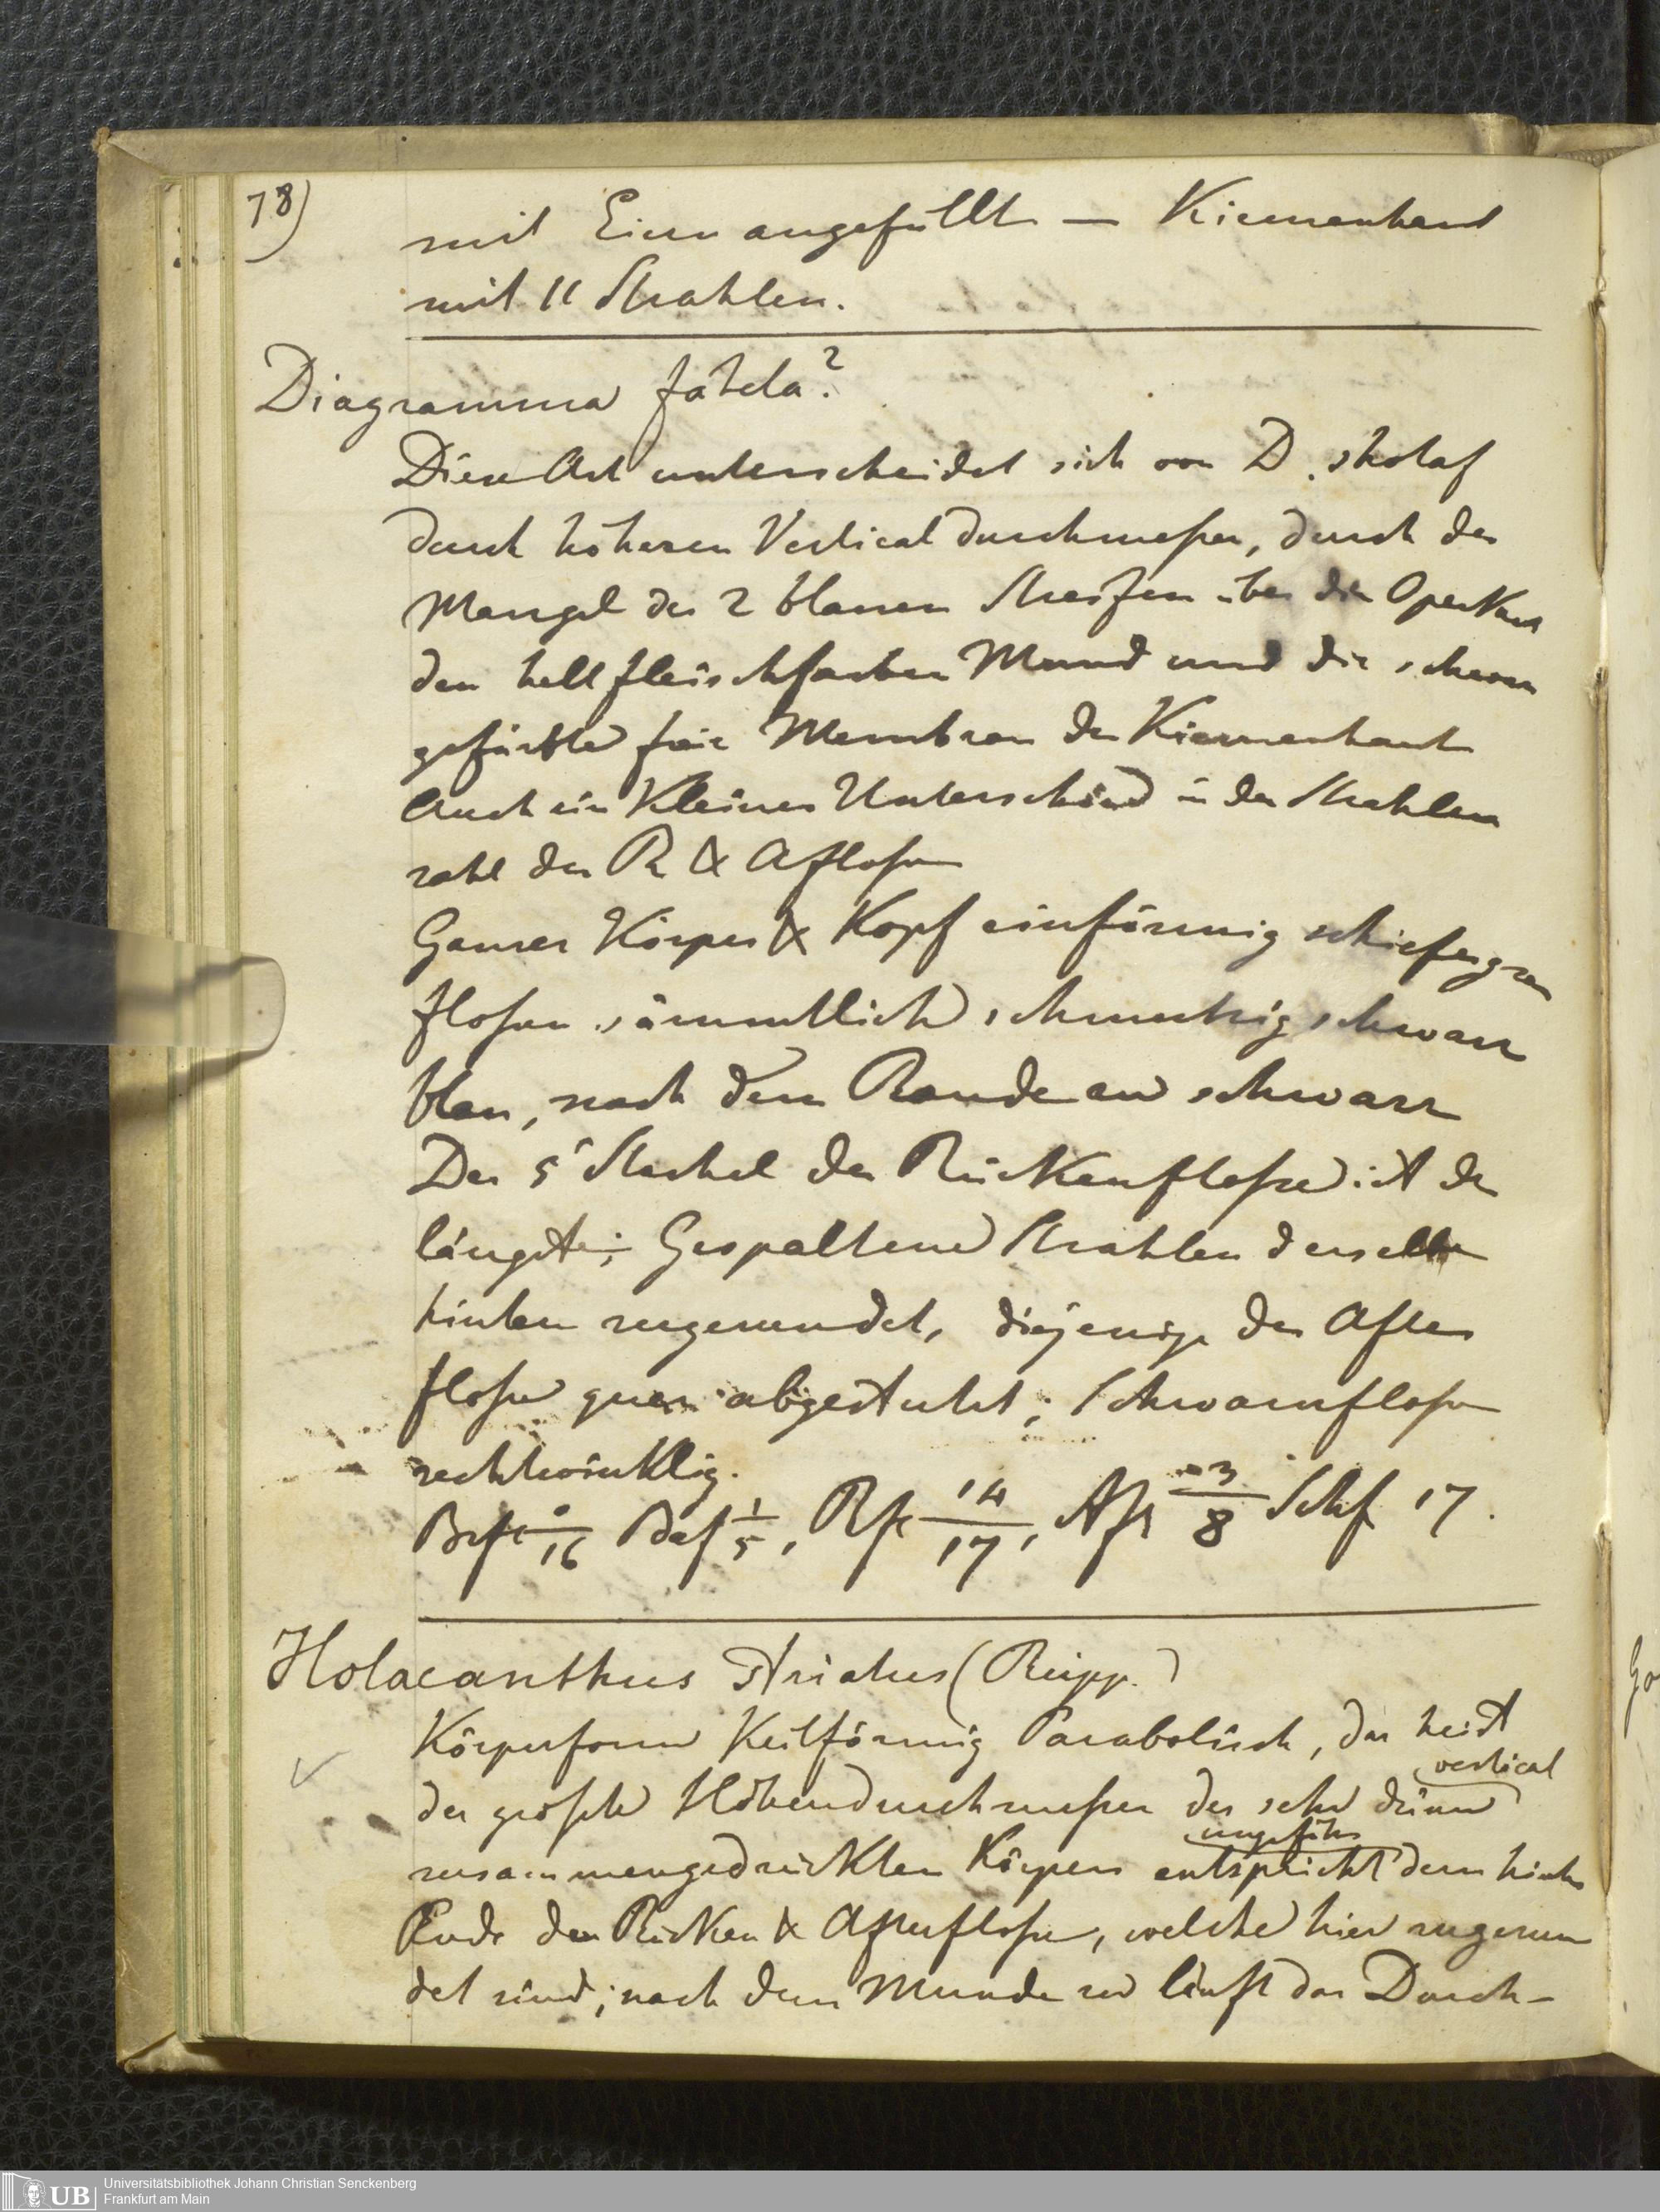 78)
mit Eiern angefüllt — Kiemenhaut
mit 11 Strahlen.
Diagramma fatela?
Diese Art unterscheidet sich von D. shotaf
durch höheren Verticaldurchmeßer, durch den
Mangel der 2 blauen Streifen über die Operkeln
den hell fleischfarben Mund und die schwarz
gefärbte freie Membran der Kiemenhaut
Auch ein kleiner Unterschied in der Strahlen
zahl der R & Afloßen
Ganzer Körper & Kopf einförmig schiefergrau
floßen sämmtlich schmutzig schwarz
blau, nach dem Rande zu schwarz
Der 5ᵗ Stachel der Rückenfloße ist der
längste; Gespaltene Strahlen derselben
hinten zugerundet, diejenige der After
floße quer abgestutzt; Schwanzfloße
rechtwinklig.
Brfl 0/16 Bafl 1/5, Rfl 14/17, Afl 3/8 Schf 17.
Holacanthus striatus (Rüpp.)
Körperform Keilförmig Parabolisch, das heist
vertical
der größte Höhendurchmeßer des sehr dünn
ungefähr
zusammengedrückten Körpers entspricht dem hintern
Ende der Rücken & Afterfloße, welche hier zugerun
det sind; nach dem Munde zu läuft der Durch-
Universitätsbibliothek Johann Christian Senckenberg
Frankfurt am Main
UB